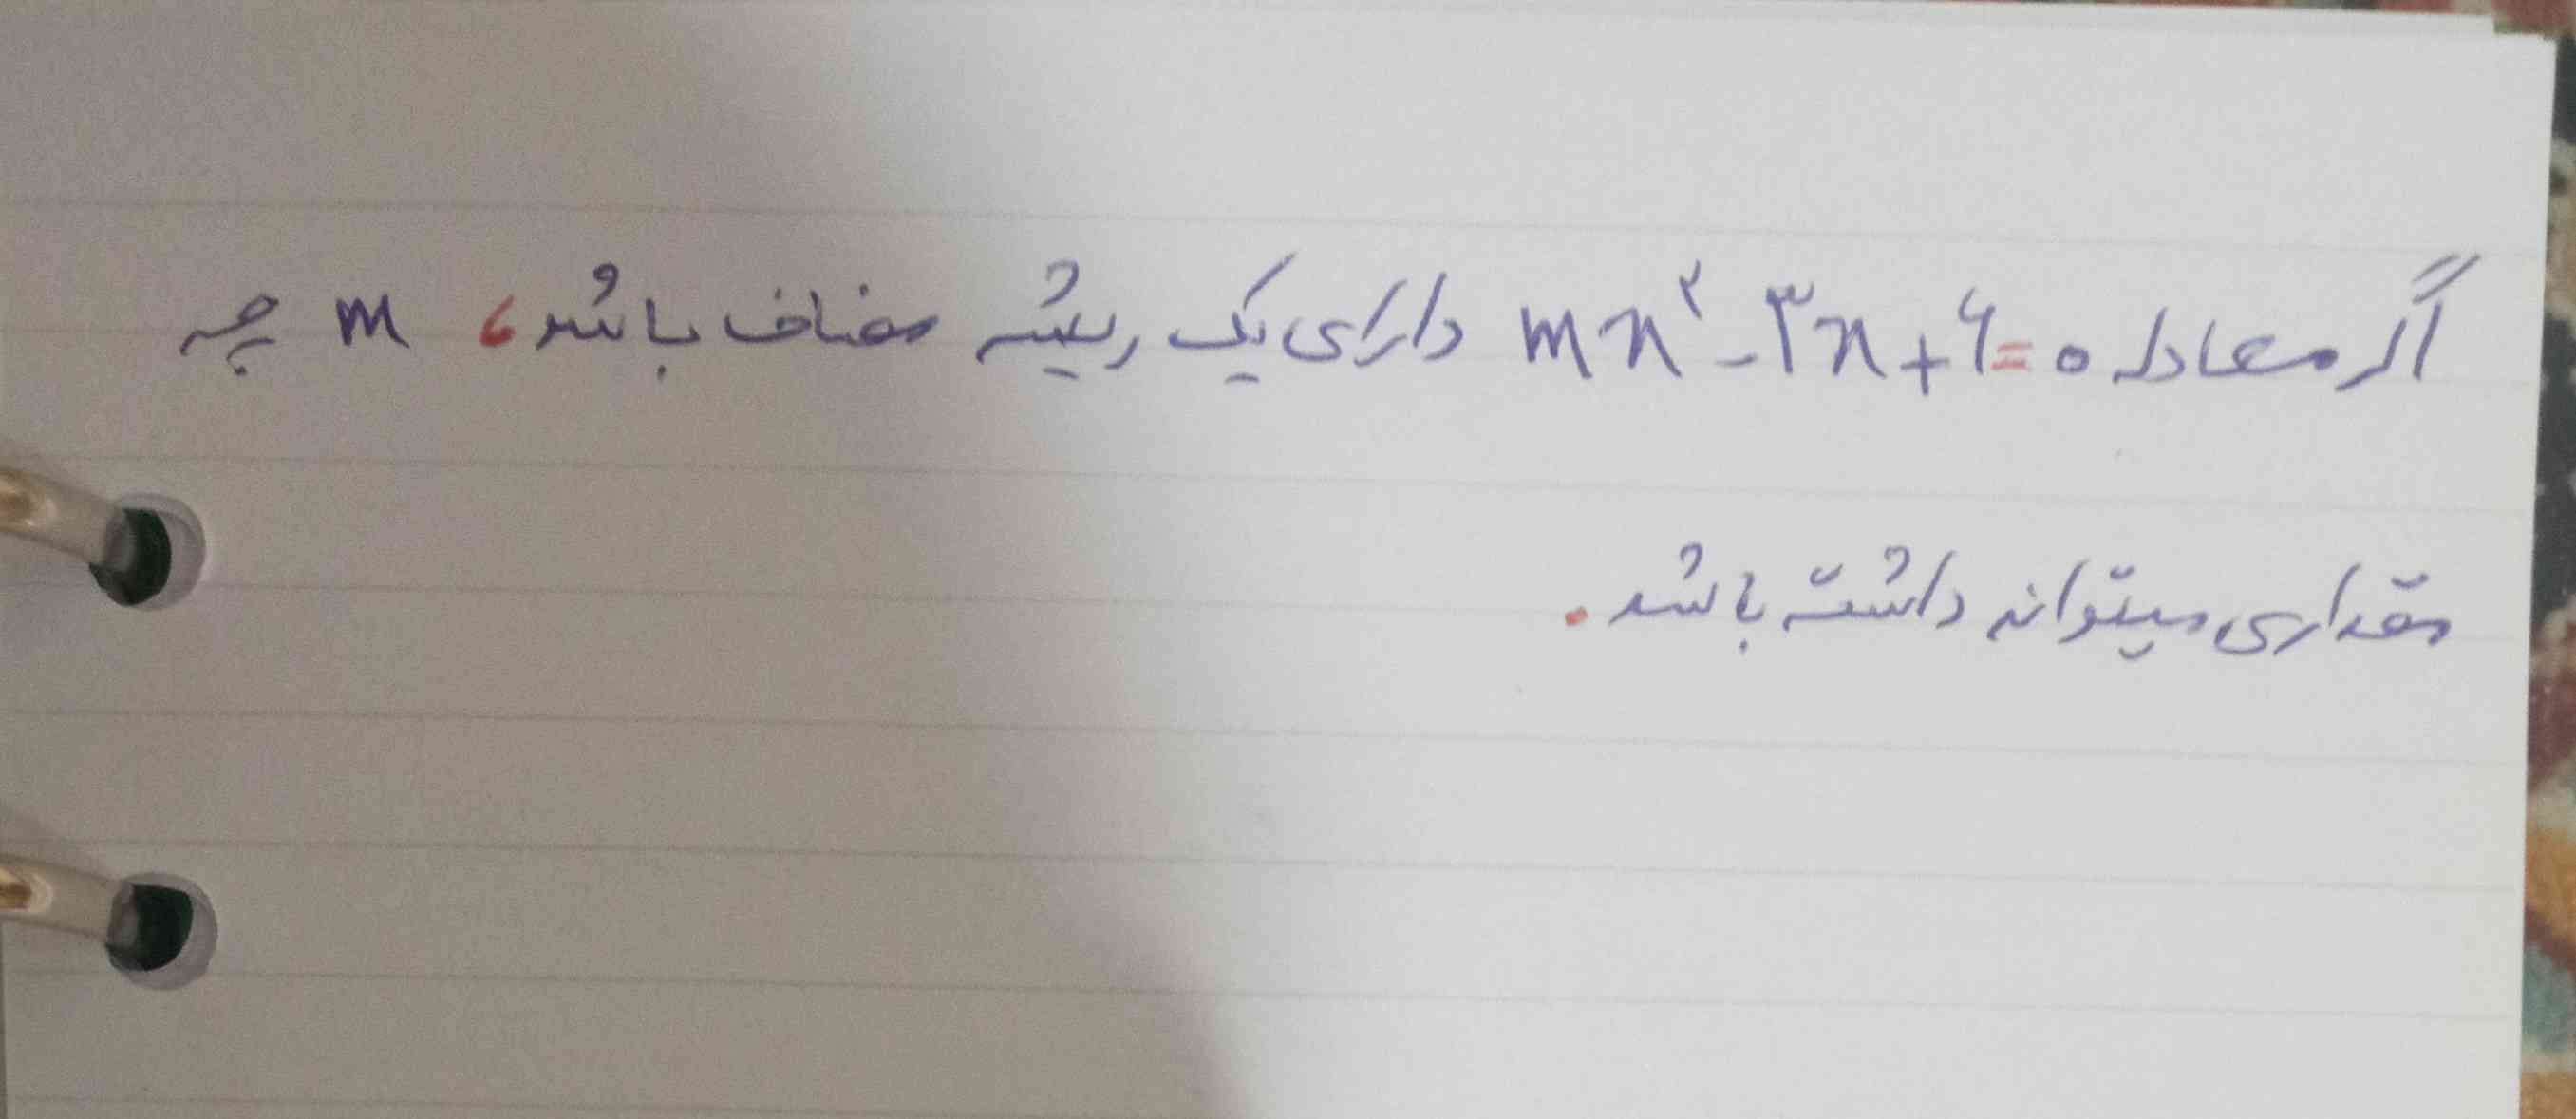 اگر معادله mx² - ۳x + ۶ = ۰ دارای یک ریشه مضاف باشد، m چه
مقداری میتواند داشته باشد.